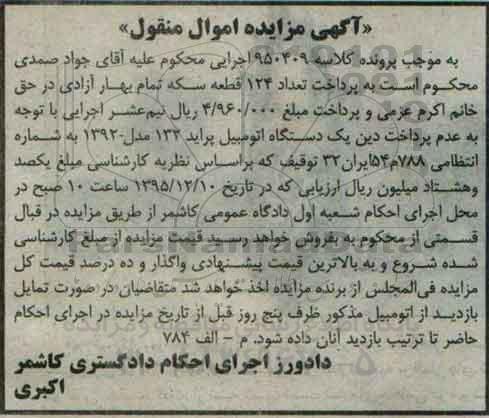 «آگهی مزایده اموال منقول»
به موجب پرونده کلاسه ۹۵۰۴۰۹ اجرایی محکوم علیه آقای جواد صمدی
محکوم است به پرداخت تعداد ۱۲۴ قطعه سکه تمام بهار آزادی در حق
خانم اکرم عزمی و پرداخت مبلغ ۴/۹۶۰/۰۰۰ ریال نیم‌عشر اجرایی با توجه
به عدم پرداخت دین یک دستگاه اتومبیل پراید ۱۳۲ مدل-۱۳۹۲ به شماره
انتظامی ۷۸۸م۵۴ایران۳۲ توقیف که براساس نظریه کارشناسی مبلغ یکصد
وهشتاد میلیون ریال ارزیابی که در تاریخ ۱۳۹۵/۱۲/۱۰ ساعت ۱۰ صبح در
محل اجرای احکام شعبه اول دادگاه عمومی کاشمر از طریق مزایده در قبال
قسمتی از محکوم به بفروش خواهد رسید قیمت مزایده از مبلغ کارشناسی
شده شروع و به بالاترین قیمت پیشنهادی واگذار و ده درصد قیمت کل
مزایده فی‌المجلس از برنده مزایده اخذ خواهد شد متقاضیان در صورت تمایل
بازدید از اتومبیل مذکور ظرف پنج روز قبل از تاریخ مزایده در اجرای احکام
حاضر تا ترتیب بازدید آنان داده شود. م - الف ۷۸۴
دادورز اجرای احکام دادگستری کاشمر
اکبری